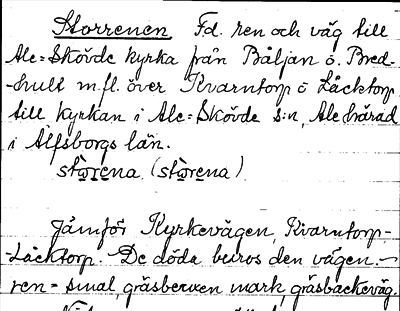 Storrenen Fd. ren och väg till
Ale=Skövde kyrka från Båljan o. Bred-
-hult m.fl. över Kvarntorp o Låcktorp
till kyrkan i Ale=Skövde s:n, Ale härad
i Älfsborgs län.
stòrena (stòrena)
Jämför Kyrkevägen, Kvarntorp-
-Låcktorp. De döda buros den vägen. -
ren = smal, gräsbeväxen mark, gräsbackeväg.